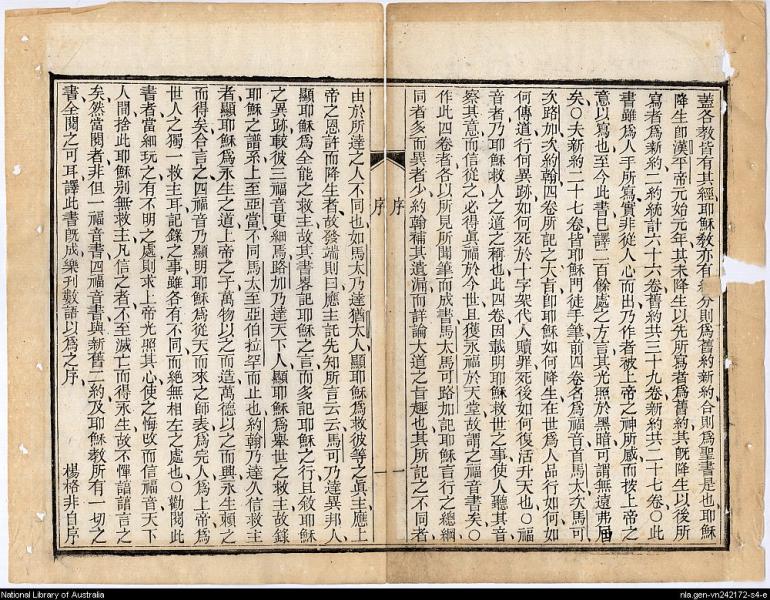 蓋各教皆有其經耶穌教亦有 分則爲舊約新約合則爲聖書是也耶穌
降生卽漢平帝元始元年其未降生以先所寫者爲舊約其旣降生以後所
寫者爲新約二約統計六十六卷舊約共三十九卷新約共二十七卷〇此
書雖爲人手所寫實非從人心而出乃作者被上帝之神所感而按上帝之
意以寫也至今此書已譯二百餘處之方言其光照於黑暗可謂無遠弗屆
矣〇夫新約二十七卷皆耶穌門徒手筆前四卷名爲福音首馬太次馬可
次路加次約翰四卷所記之大旨卽耶穌如何降生在世爲人品行如何如
何傳道行何異跡如何死於十字架代人贖罪死後如何復活升天也〇福
音者乃耶穌救人之道之稱也此四卷因載明耶穌救世之事使人聽其音
察其意而信從之必得眞福於今世且獲永福於天堂故謂之福音書矣〇
作此四卷者各以所見所聞筆而成書馬太馬可路加記耶穌言行之總綱
同者多而異者少約翰補其遺漏而詳論大道之旨趣也其所記之不同者
序
一
序
由於所達之人不同也如馬太乃達猶太人顯耶穌爲救彼等之眞主應上
帝之恩許而降生者故發端則曰應主託先知所言云云馬可乃達異邦人
顯耶穌爲全能之救主故其書畧記耶穌之言而多記耶穌之行且敘耶穌
之異跡較彼三福音更細馬路加乃達天下人顯耶穌爲舉世之救主故錄
耶穌之譜系上至亞當不同馬太至亞伯拉罕而止也約翰乃達久信救主
者顯耶穌爲永生之道上帝之子萬物以之而造萬德以之而興永生賴之
而得矣合言之四福音乃顯明耶穌爲從天而來之師表爲完人爲上帝爲
世人之獨一救主耳記錄之事雖各有不同而絕無相左之處也〇勸閱此
書者當細玩之有不明之處則求上帝光照其心使之悔改而信福音天下
人間捨此耶穌别無救主凡信之者不至滅亡而得永生故不憚諄諄言之
矣然當閱者非但一福音書四福音書與新舊二約及耶穌教所有一切之
書全閱之可耳譯此書旣成樂刋數語以爲之序
楊格非自序
National Library of Australia
nla.gen-vn242172-s4-e